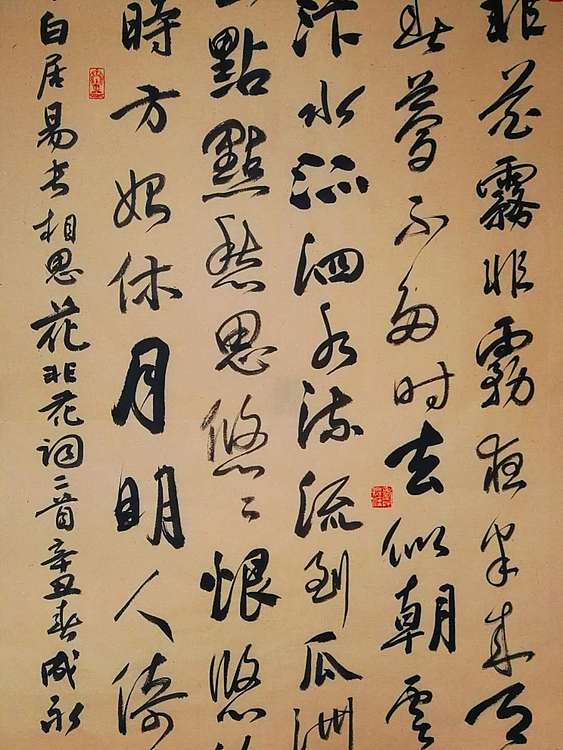 非花霧非霧夜半来天
春夢不多时去似朝雲
汴水流泗水流流到瓜洲
山點點愁思悠〻恨悠
時方始休月明人倚
白居易长相思花非花词二首辛丑春成永